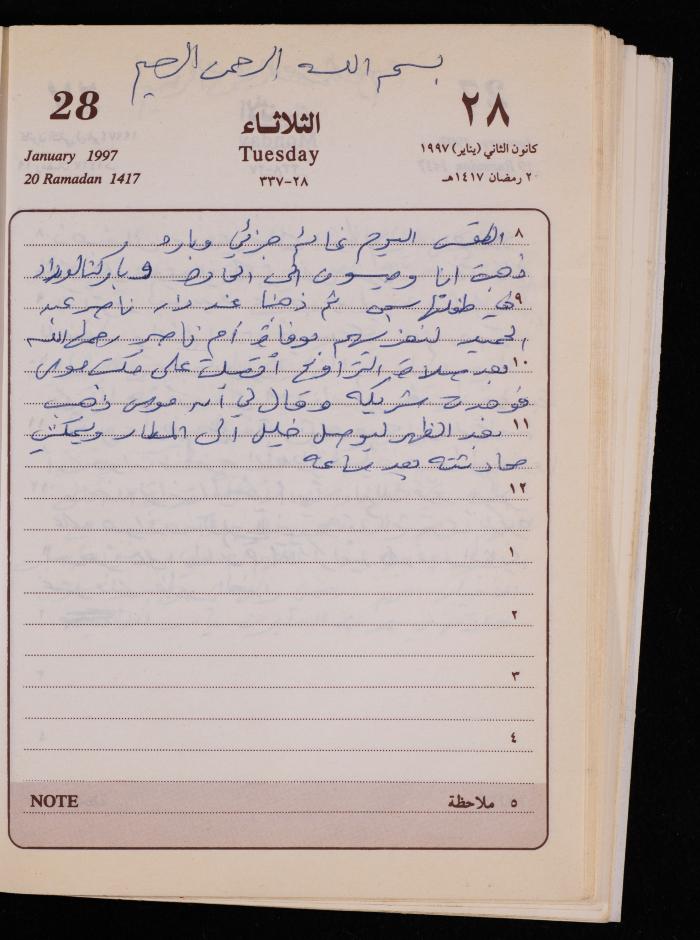 بسم الله الرحمن الرحيم
28 ٢٨
الثلاثاء
January 1997 Tuesday كانون الثاني (يناير) ١٩٩٧
20 Ramadan 1417 ٢٨-٣٣٧ ٢٠ رمضان ١٤١٧هـ
٨ الطقس اليوم غائم جزئي وبارد
ذهبت انا وميسون الى الحافظ وباركنا لوداد
٩ في طفلتها ثم ذهبنا عند دار ناصر عبد
الحميد لنعزيهم بوفاة أم ناصر رحمها الله
١٠ بعد صلاة التراويح أتصلت على مكتب موسى
فوجدت شريكه وقال لي أن موسى ذهب
١١ بعد الظهر ليوصل خليل الى المطار ويمكنني
محادثته بعد ساعه
١٢
١
٢
٣
٤
NOTE ٥ ملاحظة